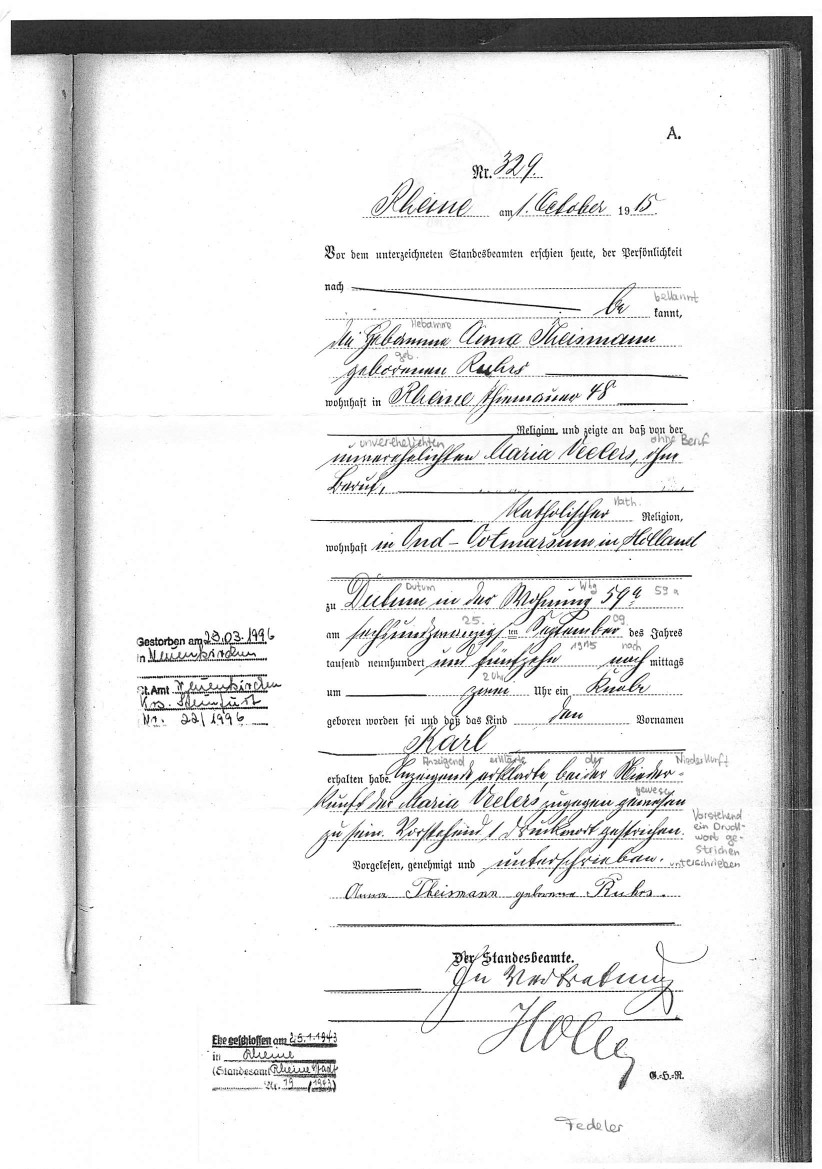 A.
Nr. 329.
Rheine am 1. October 1915
Vor dem unterzeichneten Standesbeamten erschien heute, der Persönlichkeit
nach
bekannt
be kannt,
Hebamme
die Hebamme Anna Theismann
geb.
geborenen Ruhrs
wohnhaft in Rheine 48
Religion, und zeigte an daß von der
unverehelichten ohne Beruf
unverehelichten Maria Veelers, ohne
Beruf,
Kath.
katholischer Religion,
wohnhaft in Ond-Ootmarsum in Holland
Datum Whg 59a
zu in der Wohnung 59a
25. 09.
am sechsundzwanzigsten September des Jahres
1915 nach
tausend neunhundert und fünfzehn nach mittags
2 Uhr
um zwei Uhr ein Knabe
geboren worden sei und daß das Kind den Vornamen
Karl
Anzeigend erklärte der Niederkunft
erhalten habe. Anzeigende erklärte, bei der Nieder-
gewesen
kunft der Maria Veelers zugegen gewesen
zu sein. Vorstehend 1 Druckwort gestrichen.
Vorstehend
ein Druck-
wort ge-
strichen
Vorgelesen, genehmigt und unterschrieben.
unterschrieben
Anna Theismann geborene Ruhrs.
Der Standesbeamte.
In Vertretung
Gestorben am 23.03.1996
in Neuenkirchen
St.Amt Neuenkirchen
Krs. Steinfurt
Nr. 22/1996
Ehe geschlossen am 25.1.1943
in Rheine
(Standesamt Rheine Stadt
Nr. 19 (1943)
G.-H.-R.
Fedeler